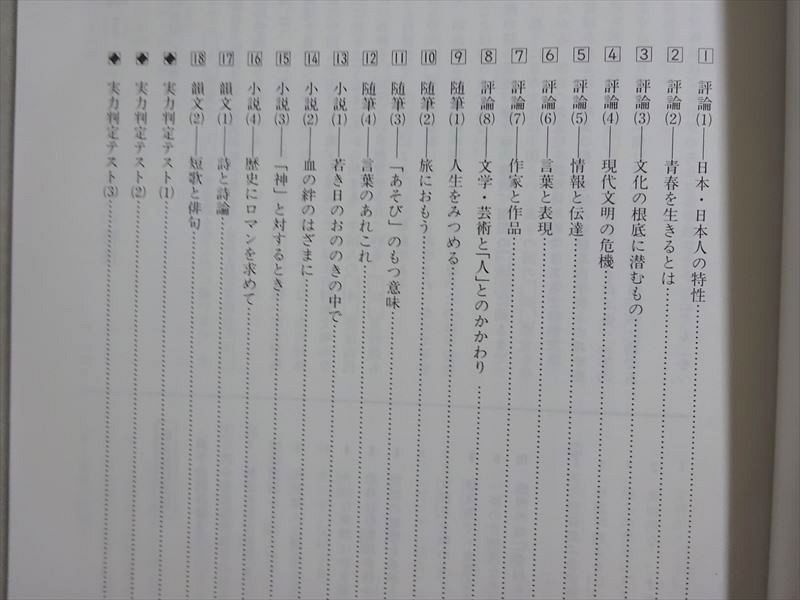 1 評論⑴――日本・日本人の特性
2 評論⑵――青春を生きるとは
3 評論⑶――文化の根底に潜むもの
4 評論⑷――現代文明の危機
5 評論⑸――情報と伝達
6 評論⑹――言葉と表現
7 評論⑺――作家と作品
8 評論⑻――文学・芸術と「人」とのかかわり
9 随筆⑴――人生をみつめる
10 随筆⑵――旅におもう
11 随筆⑶――「あそび」のもつ意味
12 随筆⑷――言葉のあれこれ
13 小説⑴――若き日のおののきの中で
14 小説⑵――血の絆のはざまに
15 小説⑶――「神」と対するとき
16 小説⑷――歴史にロマンを求めて
17 韻文⑴――詩と詩論
18 韻文⑵――短歌と俳句
◆ 実力判定テスト⑴
◆ 実力判定テスト⑵
◆ 実力判定テスト⑶